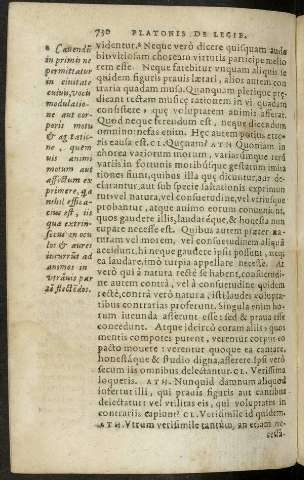 730 PLATONIS DE LEGIB.
a Cavendū
in primis ne
permittatur
in civitate
cuivis, vocis
modulatio-
ne aut cor-
poris motu
& agitatio-
ne, quem
vis animi
motum aut
affectum ex
primere, quo
nihil effica-
cius est, iis
quæ extrin-
secus in ocu
los & aures
incurrūt ad
animos in
utramvis par
tē flectēdos.
videntur. a Neque verò dicere quisquam audebit
vitiosam choream virtutis participe meliorem
rem esse. Neque fatebitur unquam aliquis se
quidem figuris pravis lætari, alios autem contraria
quadam musa. Quanquam plerique prædicant
rectam musicę rationem in vi quadam
consistere, quę voluptatem animis afferat.
Quod neque ferendum est, neque dicendum
omnino nefas enim. Hęc autem potius erroris
causa est. CL. Quęnam? ATH Quoniam in
chorea variorum morum, variarumque rerum
variis in fortunis moribusque gestatum imitationes
fiunt, quibus illa quę dicuntur, aut
declarantur, aut sub specie saltationis exprimuntur
vel natura, vel consuetudine, vel utrisque
probantur, atque animo eorum conveniunt,
quos gaudere illis, laudaréque, & honesta nuncupare
necesse est. Quibus autem præter naturam
vel morem, vel consuetudinem aliquā
accidunt, hi neque gaudere ipsis possunt, neque
ea laudare, imo turpia appellare necesse. At
verò quì à natura rectè se habent, consuetudine
autem contrà, vel à consuetudine quidem
rectè, contrà verò natura, isti laudes voluptatibus
contrarias proferunt. Singula enim horum
iucunda asserunt esse: sed & prava esse
concedunt. Atque idcircò coram aliis quos
mentis compotes putent, verentur corpus eo
pacto movere: verentur quoque ea cantare,
honestáque & studio digna, asserere ipsi verò
secum iis omnibus delectantur. CL. Verissima
loqueris. ATH. Nunquid damnum aliquod
infertur illi, qui pravis figuris aut cantibus
delectatur: vel utilitas eis, qui voluptates in
contrariis capiunt? CL. Verisimile id quidem.
ATH. Utrum verisimile tantùm, an etiam ne-
cessa-